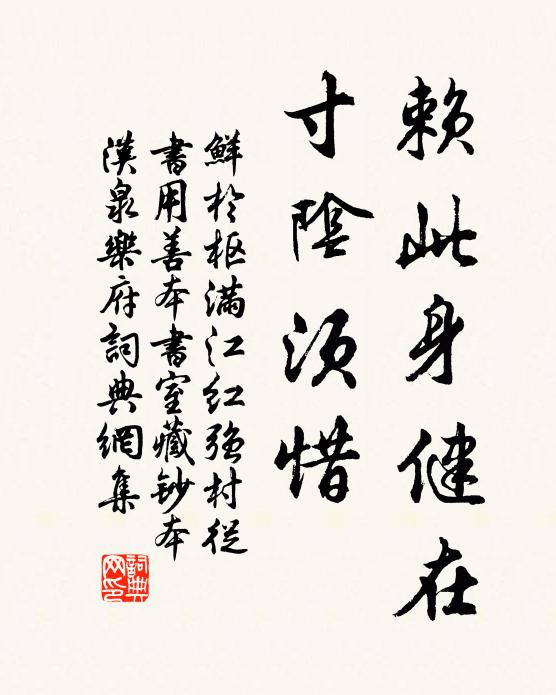 賴此身健在
寸陰須惜
鮮於枢滿江红强村從
書用善本書室藏鈔本
漢泉樂府詞典網集
詞典
网印